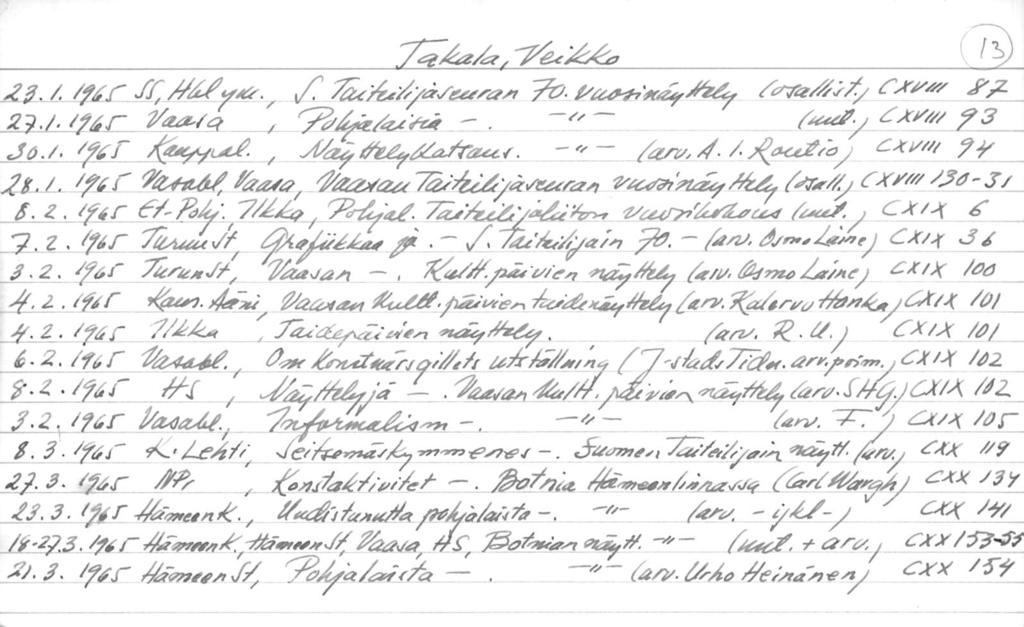 Takala, Veikko
13
23.1.1965 SS, Hbl ym., S. Taiteilijaseuran 70. vuosinäyttely (osallist.) CXVIII 87
27.1.1965 Vaasa, Pohjalaisia -. -"- (uut.) CXVIII 93
30.1.1965 Kauppal., Näyttelykatsaus. -"- (arv. A. I. Routio) CXVIII 94
28.1.1965 Vasabl, Vaasa, Vaasan Taiteilijaseuran vuosinäyttely (osall.) CXVIII 130-31
8.2.1965 Et-Pohj. Ilkka, Pohjal. Taiteilijaliiton vuosikokous (uut.) CXIX 6
7.2.1965 TurunSt, Grafiikkaa ja .- S. Taiteilijain 70.- (arv. Osmo Laine) CXIX 36
3.2.1965 TurunSt, Vaasan -. Kultt.päivien näyttely (arv. Osmo Laine) CXIX 100
4.2.1965 Kans. Ääni, Vaasan Kultt.päivien taidenäyttely (arv. Kalervo Hanka) CXIX 101
4.2.1965 Ilkka, Taidepäivien näyttely. (arv. R.U.) CXIX 101
6.2.1965 Vasabl., Om Konstnärsgillets utställning (J-stads Tidn. arv. poim.) CXIX 102
8.2.1965 HS, Näyttelyjä -. Vaasan Kultt. päivien näyttely (arv. SHG.) CXIX 102
3.2.1965 Vasabl., Informalism -. -"- (arv. F.) CXIX 105
8.3.1965 K. Lehti, Seitsemäskymmenes -. Suomen Taiteilijain näytt. (arv.) CXX 119
27.3.1965 NPr, Konstaktivitet -. Botnia Hämeenlinnassa (Carl Wargh) CXX 134
23.3.1965 HämeenK., Uudistunutta pohjalaista -. -"- (arv. -ykl-) CXX 141
18-27.3.1965 HämeenK, HämeenSt, Vaasa, HS, Botnian näytt. -"- (uut. + arv.) CXX 153-55
21.3.1965 HämeenSt, Pohjalaista -. -"- (arv. Urho Heinänen) CXX 154